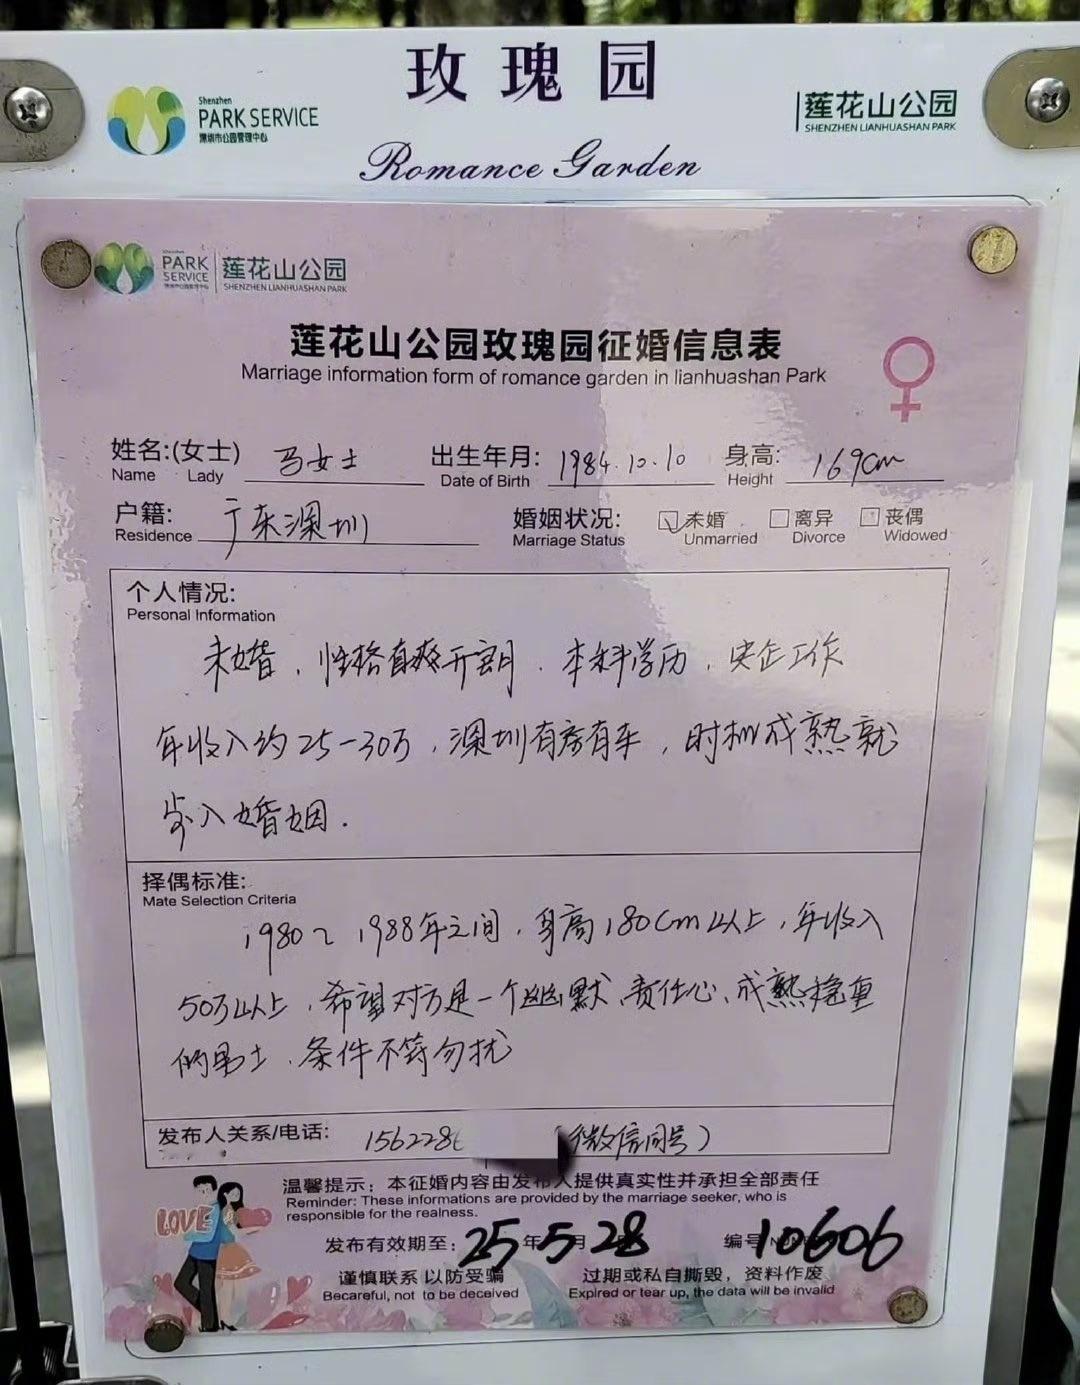 玫瑰园
Shenzhen
PARK SERVICE
深圳市公园管理中心
莲花山公园
SHENZHEN LIANHUASHAN PARK
Romance Garden
PARK SERVICE
莲花山公园
SHENZHEN LIANHUASHAN PARK
莲花山公园玫瑰园征婚信息表
Marriage information form of romance garden in lianhuashan Park
姓名:(女士) 马女士 出生年月: 1984.10.10 身高: 169cm
Name Lady Date of Birth Height
户籍: 广东深圳 婚姻状况: 未婚 离异 丧偶
Residence Marriage Status Unmarried Divorce Widowed
个人情况:
Personal Information
未婚，性格直爽开朗．本科学历，央企工作
年收入约25-30万，深圳有房有车，时机成熟就
步入婚姻．
择偶标准:
Mate Selection Criteria
1980～1988年之间，身高180cm以上，年收入
50万以上，希望对方是一个幽默、责任心、成熟稳重
的男士、条件不符勿扰
发布人关系/电话: 1562286 (微信同号)
温馨提示：本征婚内容由发布人提供真实性并承担全部责任
Reminder: These informations are provided by the marriage seeker, who is
responsible for the realness.
LOVE
发布有效期至：25年5月28 编号 10606
谨慎联系 以防受骗 过期或私自撕毁，资料作废
Becareful, not to be deceived Expired or tear up, the data will be invalid